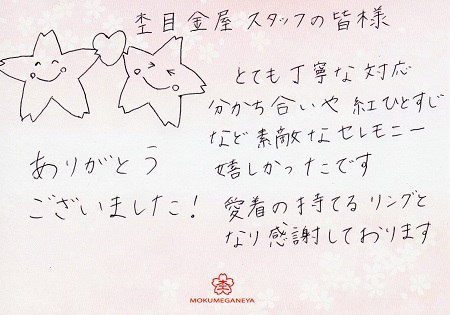 杢目金屋 スタッフの皆様
とても丁寧な対応
分かち合いや 紅ひとすじ
など 素敵なセレモニー
嬉しかったです
ありがとう
ございました!
愛着の持てるリングと
なり感謝しております
MOKUMEGANEYA